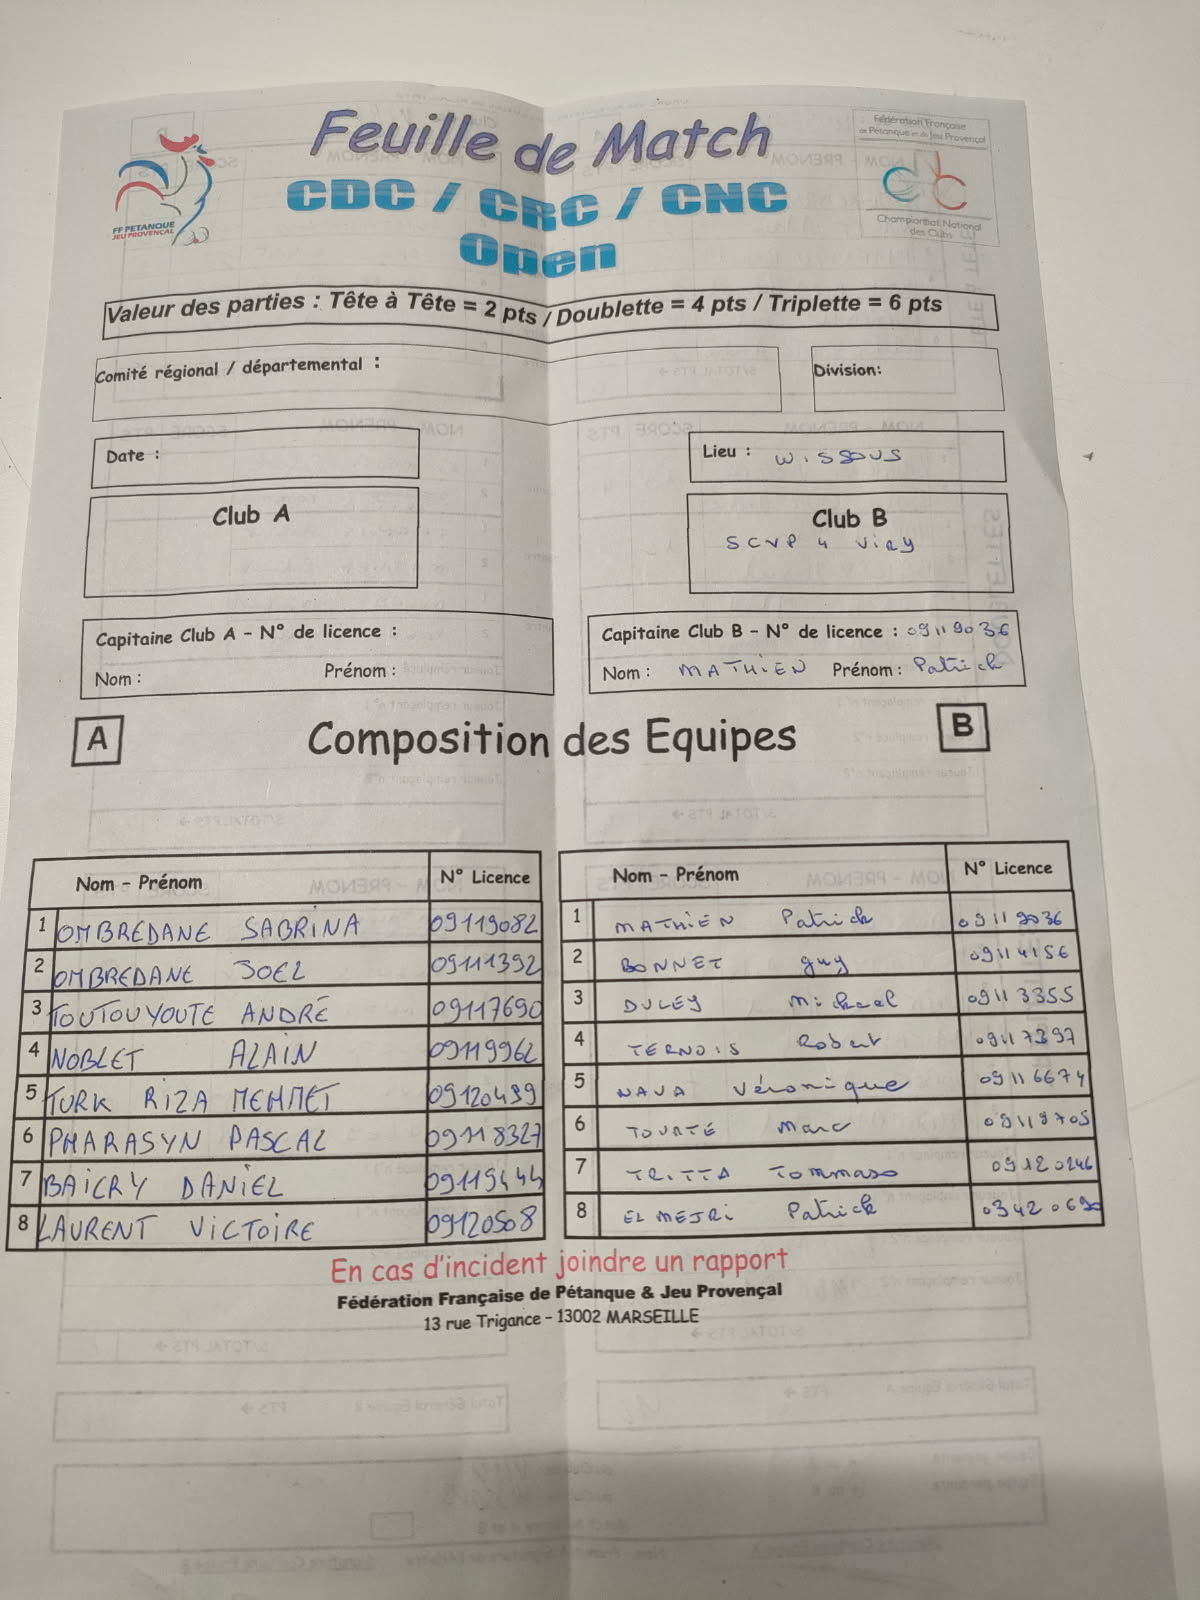 Feuille de Match
CDC / CRC / CNC
Open
FF PETANQUE
JEU PROVENÇAL
Fédération Française
de Pétanque et de Jeu Provençal
Championnat National
des Clubs
Valeur des parties : Tête à Tête = 2 pts / Doublette = 4 pts / Triplette = 6 pts
Comité régional / départemental :
Division:
Date :
Lieu : WISSOUS
Club A
Club B
SCVP 4 VIRY
Capitaine Club A - N° de licence :
Nom : Prénom :
Capitaine Club B - N° de licence : 09119036
Nom : MATHIEN Prénom : Patrick
A Composition des Equipes B
Nom - Prénom N° Licence
1 OMBREDANE SABRINA 09119082
2 OMBREDANE JOEL 09111392
3 TOUTOUYOUTE ANDRÉ 09117690
4 NOBLET ALAIN 09119962
5 TURK RIZA MEHMET 09120499
6 PHARASYN PASCAL 09118327
7 BAICRY DANIEL 09119444
8 LAURENT VICTOIRE 09120508
Nom - Prénom N° Licence
1 MATHIEN Patrick 09119036
2 BONNET guy 09114156
3 DULEY Michael 09113355
4 TERNOIS Robert 09117397
5 NAVA Véronique 09116674
6 TOURTE Marc 09119705
7 TRITTA Tommaso 09120246
8 EL MEJRI Patrick 03420690
En cas d'incident joindre un rapport
Fédération Française de Pétanque & Jeu Provençal
13 rue Trigance - 13002 MARSEILLE